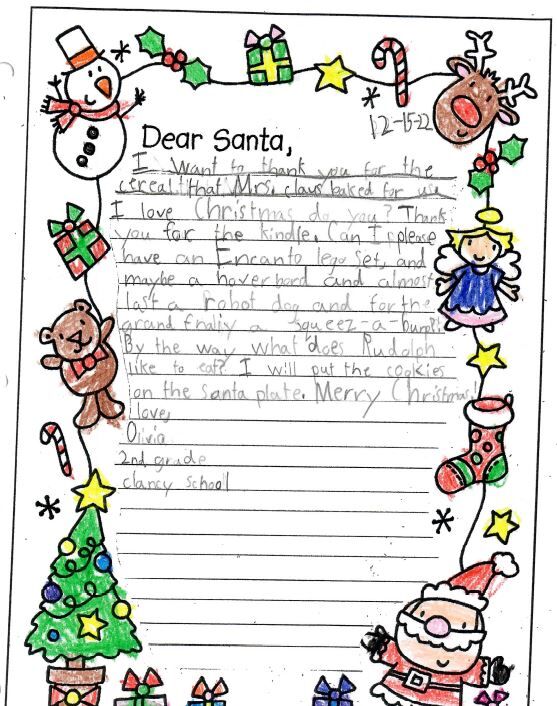 12-15-22
Dear Santa,
I want to thank you for the
cereal that Mrs. claus baked for use
I love Christmas do you? Thank
you for the kindle. Can I please
have an Encanto lego set, and
maybe a hover bord and almost
last a robot dog and for the
grand fnaliy a squeez-a-
By the way what does Rudolph
like to eat? I will put the cookies
on the santa plate. Merry Christmas!
love,
Olivia
2nd grade
clancy school